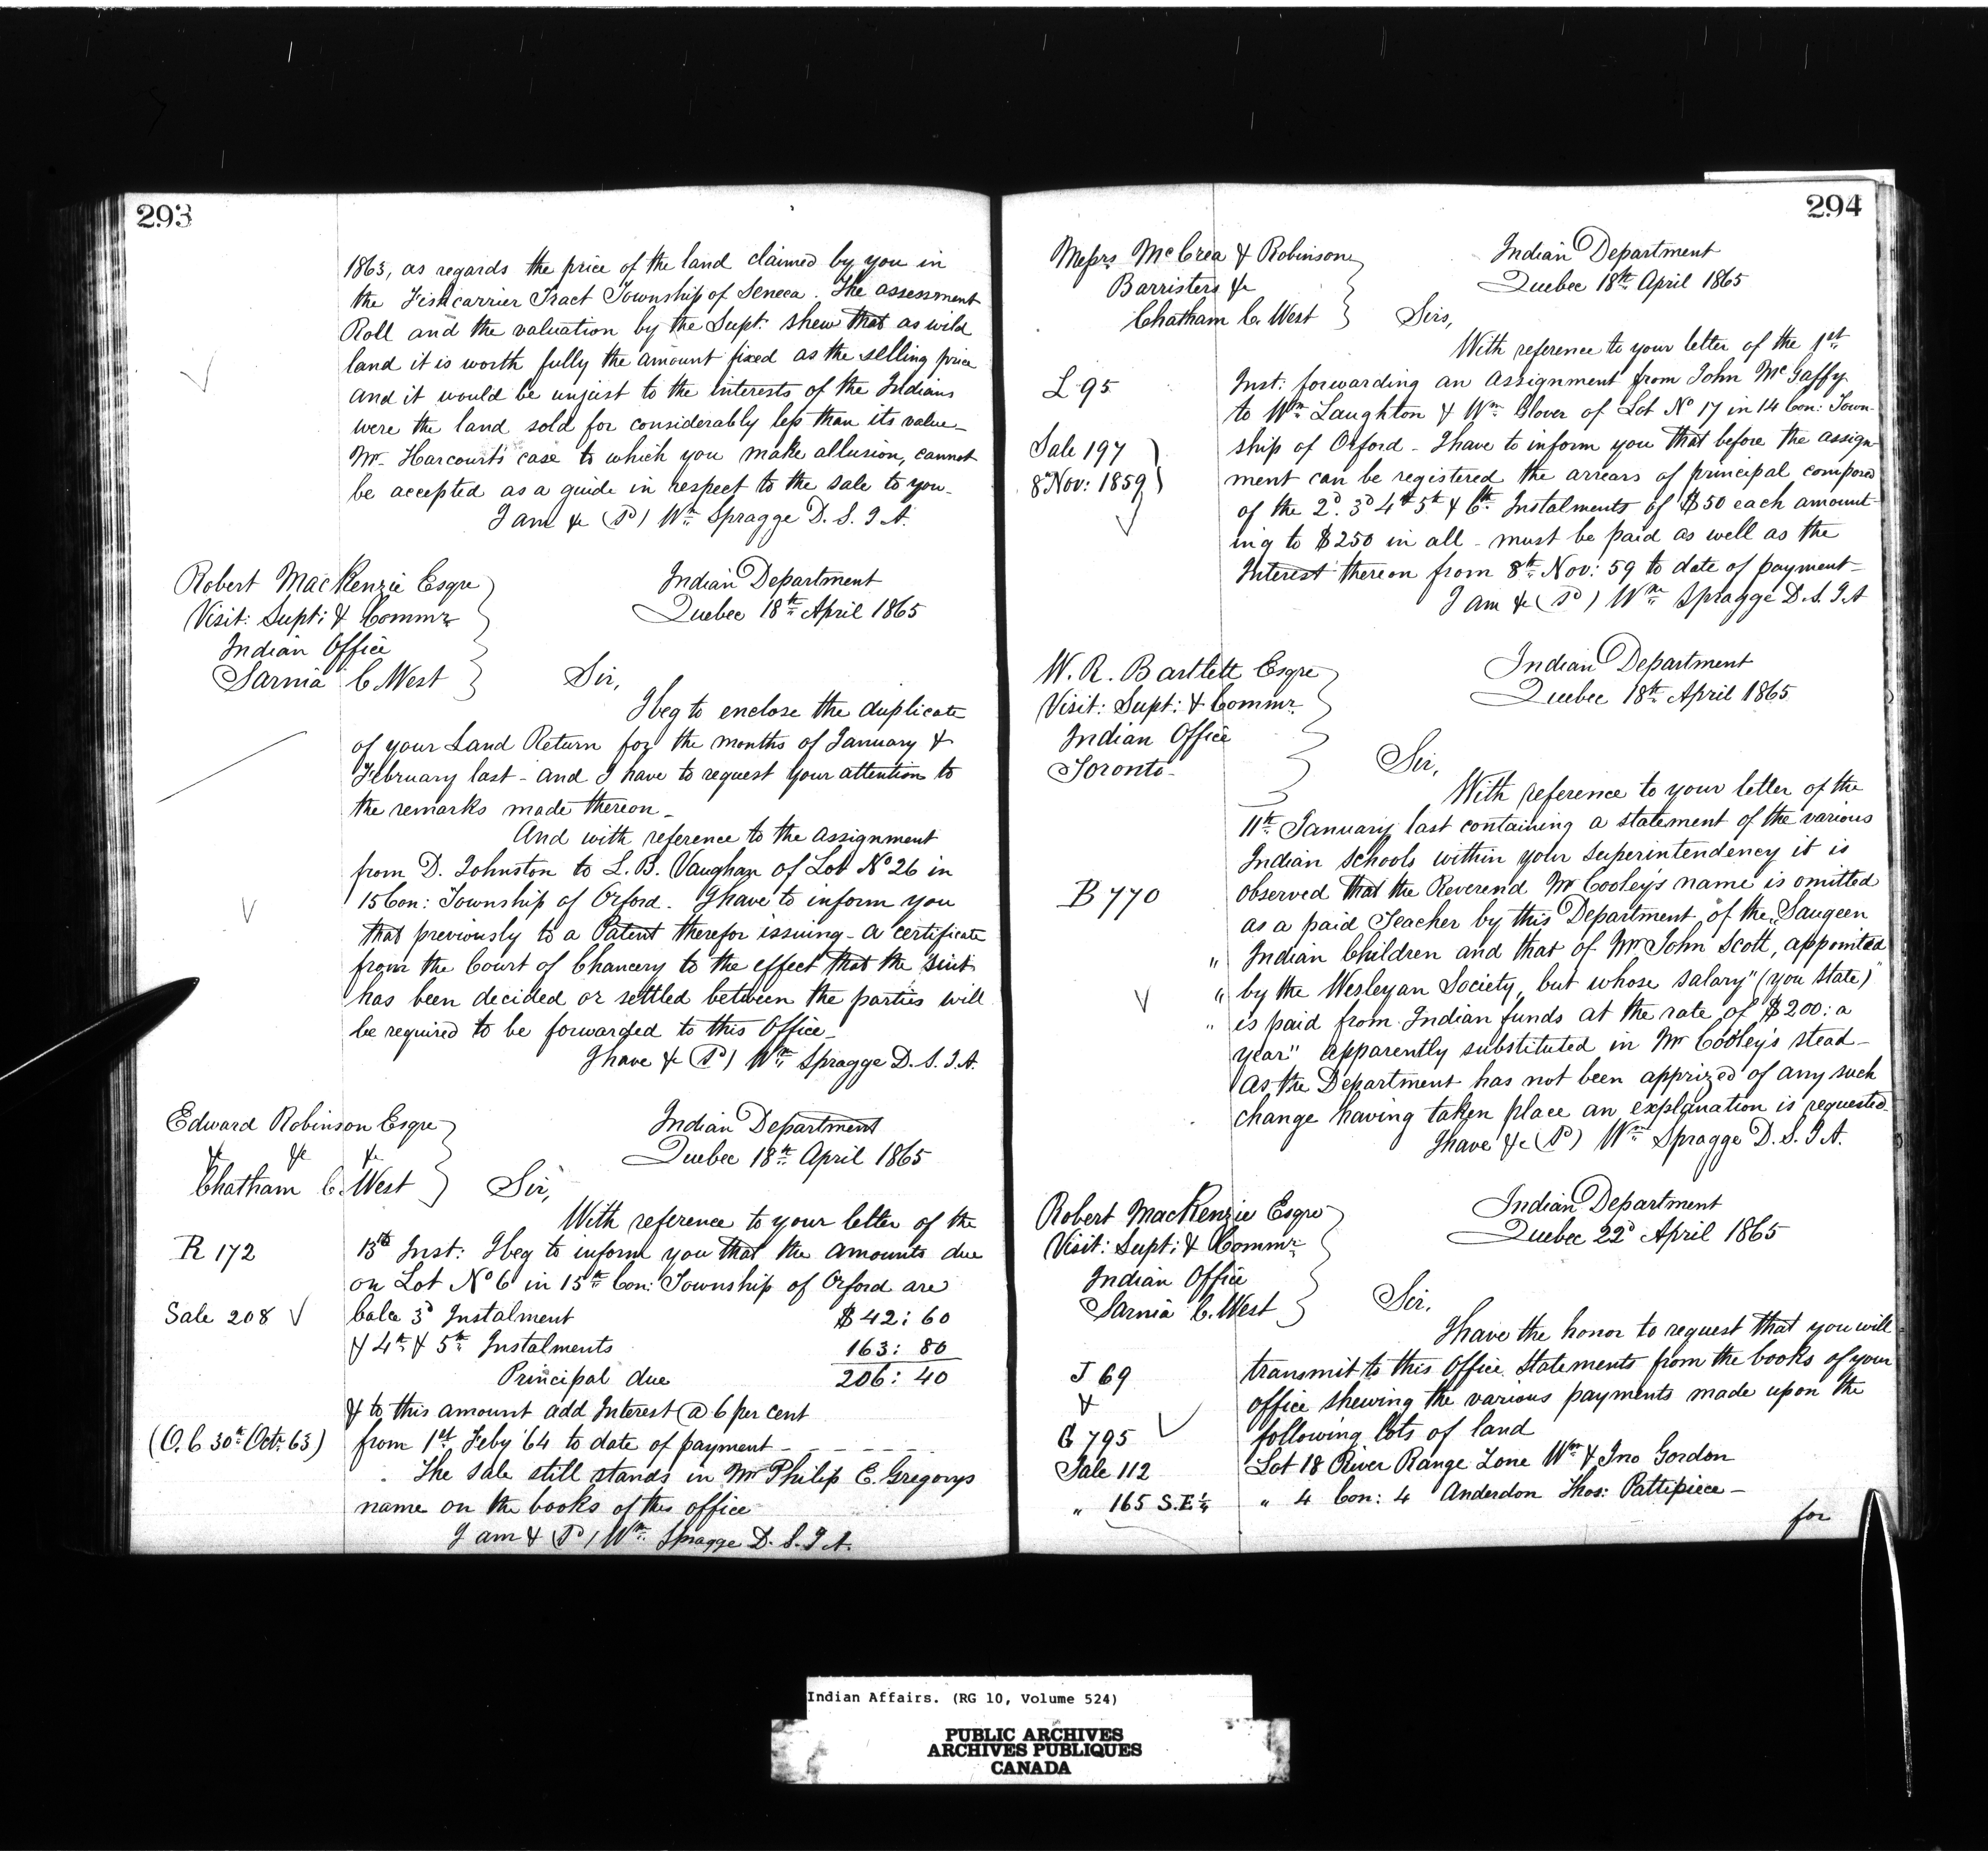 293
1863, as regards the price of the land claimed by you in
the Fishcarrier Tract Township of Seneca. The assessment
Roll and the valuation by the Supt. shew that as wild
land it is worth fully the amount fixed as the selling price
and it would be unjust to the interests of the Indians
were the land sold for considerably less than its value_
Mr. Harcourt's case to which you make allusion, cannot
be accepted as a guide in respect to the sale to you_
I am &c (Sd) Wm Spragge D. S. I. A.
Robert MacKenzie Esqre
Visit: Supt: & Commr
Indian Office
Sarnia C. West
Indian Department
Quebec 18th April 1865
Sir,
I beg to enclose the duplicate
of your Land Return for the months of January &
February last - and I have to request your attention to
the remarks made thereon_
And with reference to the assignment
from D. Johnston to L. B. Vaughan of Lot No 26 in
15 Con: Township of Orford. I have to inform you
that previously to a Patent therefor issuing - a certificate
from the Court of Chancery to the effect that the suit
has been decided or settled between the parties will
be required to be forwarded to this Office_
I have &c (Sd) Wm Spragge D. S. I. A.
Edward Robinson Esqre
&c &c &c
Chatham C. West
Indian Department
Quebec 18th April 1865
Sir,
With reference to your letter of the
R 172
13th Inst: I beg to inform you that the amounts due
on Lot No 6 in 15th Con: Township of Orford are
Sale 208
balce 3d Instalment $42: 60
& 4th & 5th Instalments 163: 80
Principal due 206: 40
& to this amount add Interest @ 6 per cent
(O. C 30th Oct: 63)
from 1st Feby '64 to date of payment_
The sale still stands in Mr Philip E. Gregorys
name on the books of this office
I am & (Sd) Wm Spragge D. S. I. A.
294
Messrs McCrea & Robinson
Barristers &c
Chatham C. West
Indian Department
Quebec 18th April 1865
Sirs,
With reference to your letter of the 1st
L 95
Inst: forwarding an assignment from John McGaffy
to Wm Laughton & Wm Glover of Lot No 17 in 14 Con: Town-
Sale 197
8 Nov: 1859
ship of Orford - I have to inform you that before the assign-
ment can be registered the arrears of principal composed
of the 2d 3d 4th 5th & 6th Instalments of $50 each amount-
ing to $250 in all - must be paid as well as the
Interest thereon from 8th Nov: 59 to date of payment_
I am &c (Sd) Wm Spragge D. S. I. A
W. R. Bartlett Esqre
Visit: Supt: & Commr.
Indian Office
Toronto_
Indian Department
Quebec 18th April 1865
Sir,
With reference to your letter of the
11th January last containing a statement of the various
Indian schools within your Superintendency it is
B 770
observed that the Reverend Mr Cooley's name is omitted
as a paid Teacher by this Department of the "Saugeen
" Indian Children and that of Mr John Scott, appointed
" by the Wesleyan Society, but whose salary" (you state)"
" is paid from Indian funds at the rate of $200: a
year" apparently substituted in Mr Cooley's stead_
As the Department has not been apprized of any such
change having taken place an explanation is requested_
I have &c (Sd) Wm Spragge D. S. I. A.
Robert MacKenzie Esqre
Visit: Supt: & Commr
Indian Office
Sarnia C. West
Indian Department
Quebec 22d April 1865
Sir,
I have the honor to request that you will
J 69
&
G 795
transmit to this Office statements from the books of your
office shewing the various payments made upon the
following lots of land
Sale 112
Lot 18 River Range Zone Wm & Jno Gordon
" 165 S.E¼
" 4 Con: 4 Anderdon Thos: Pattipiece_
for
Indian Affairs. (RG 10, Volume 524)
PUBLIC ARCHIVES
ARCHIVES PUBLIQUES
CANADA